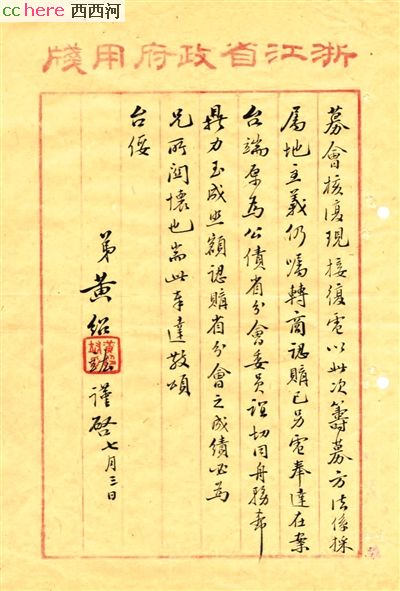 cchere 西西河
浙江省政府用牋
募會核復現接復電以此次籌募方法係採
屬地主義仍囑轉商認購已另電奉達在案
台端原為公債省分會委員誼切同舟務希
鼎力玉成照額認購省分會之成績必為
兄所關懷也耑此奉達敬頌
台綏
弟黃紹竑謹啓七月三日